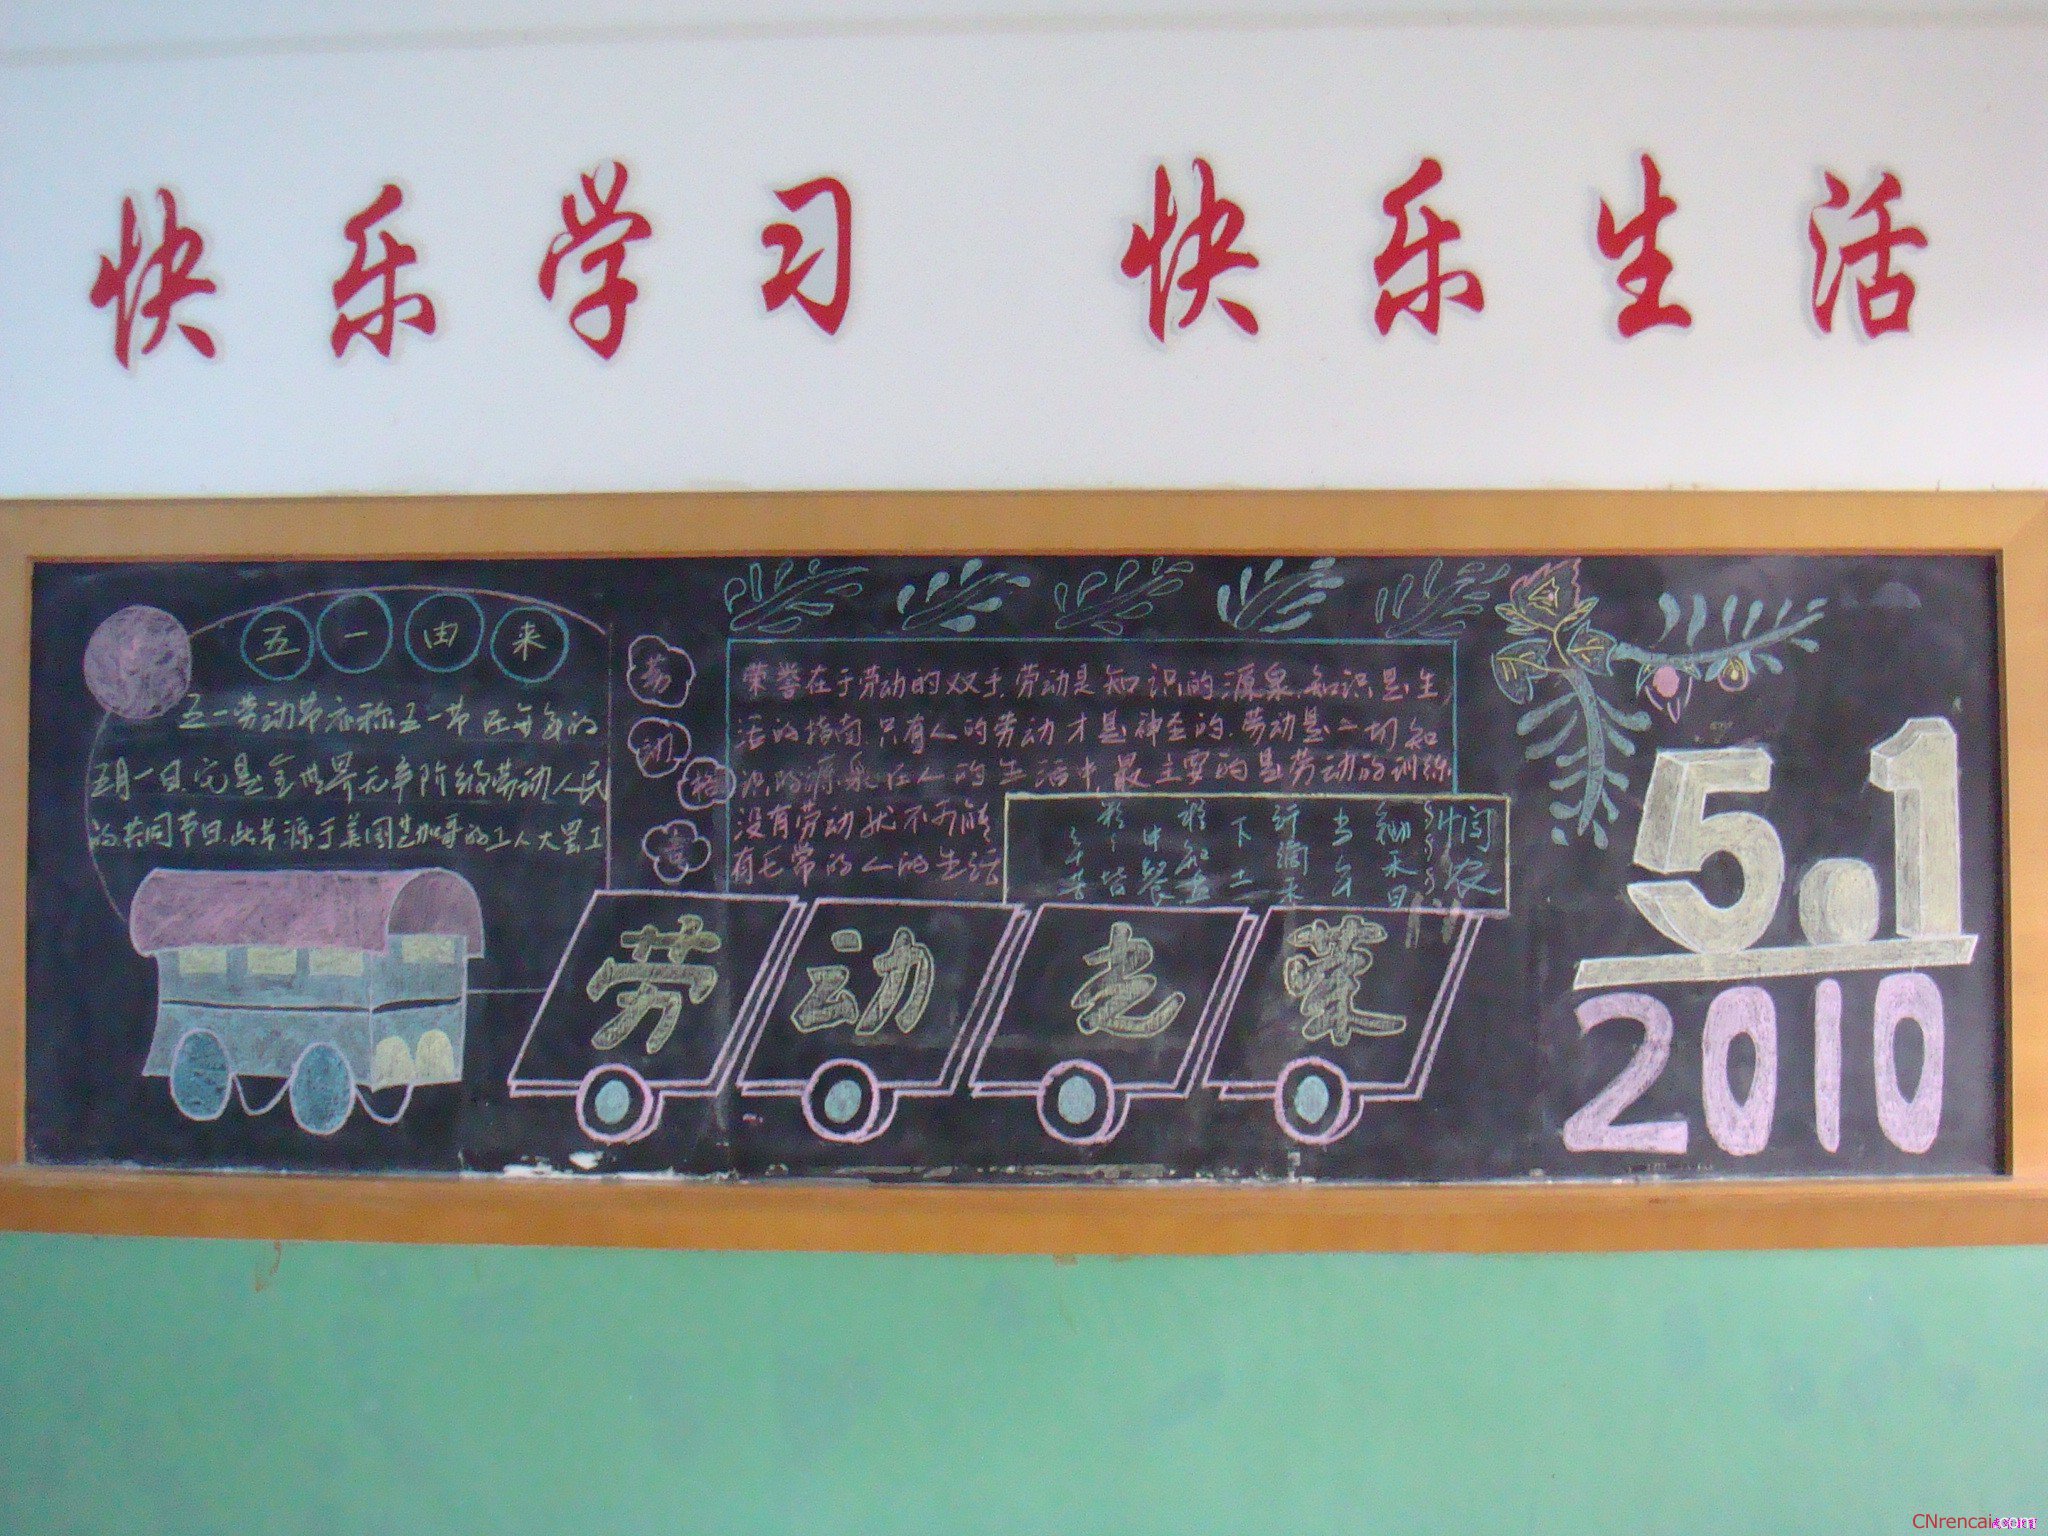 快乐学习 快乐生活
五一由来
五一劳动节亦称五一节 在每年的
五月一日.它是全世界无产阶级劳动人民
的共同节日.此节源于美国芝加哥的工人大罢工
劳动格言
荣誉在于劳动的双手.劳动是知识的源泉.知识是生
活的指南.只有人的劳动才是神圣的.劳动是一切知
识的源泉.在人的生活中.最主要的是劳动的训练
没有劳动就不可能
有正常的人的生活
悯农
锄禾日
当午
汗滴禾
下土
谁知盘
中餐
粒粒皆
辛苦
劳动光荣
5.1
2010
CNrencai.com